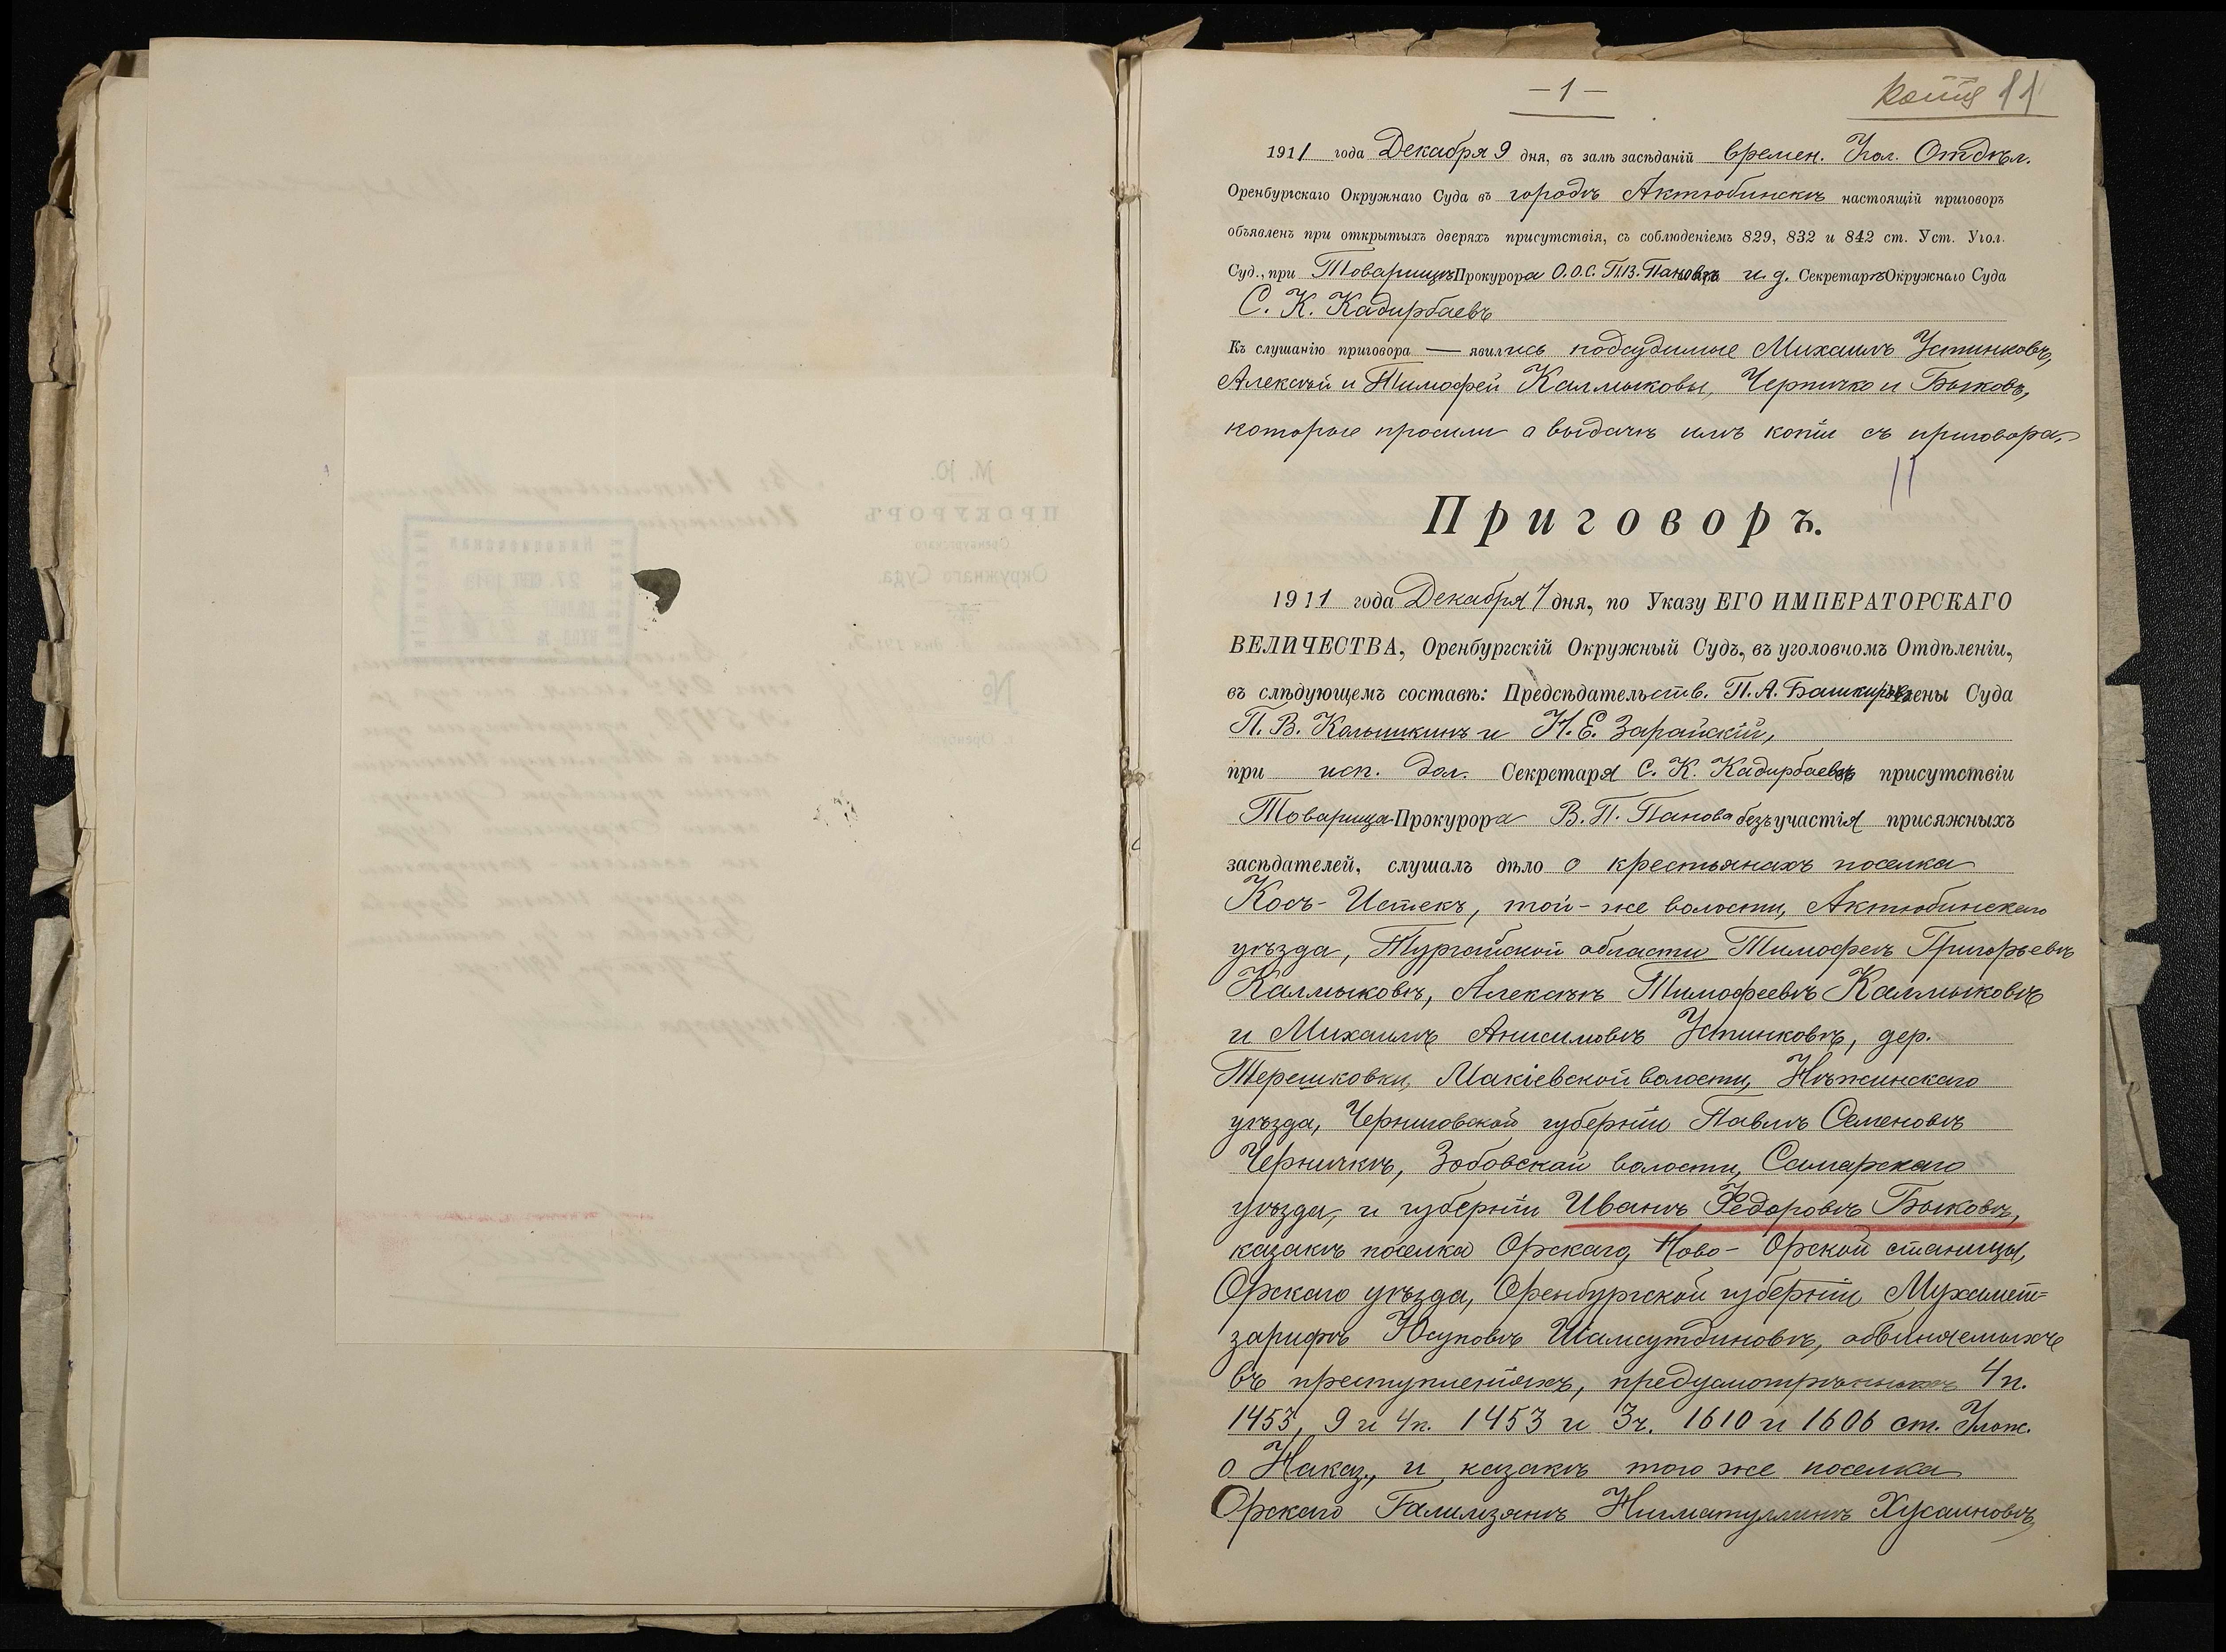 — 1 —
Копія 11
1911 года Декабря 9 дня, въ залѣ засѣданій времен. Угол. Отдѣл.
Оренбургскаго Окружнаго Суда въ городѣ Актюбинскѣ настоящій приговоръ
объявленъ при открытыхъ дверяхъ присутствія, съ соблюденіемъ 829, 832 и 842 ст. Уст. Угол.
Суд., при Товарищѣ Прокурора О.О.С. П.В. Пановѣ и. д. Секретарѣ Окружнаго Суда
С. К. Кадирбаевъ
Къ слушанію приговора — явились подсудимые Михаилъ Устинковъ,
Алексѣй и Тимофей Калмыковы, Черничко и Быковъ,
которые просили о выдачѣ имъ копіи съ приговора.
11
Приговоръ.
1911 года Декабря 7 дня, по Указу ЕГО ИМПЕРАТОРСКАГО
ВЕЛИЧЕСТВА, Оренбургскій Окружный Судъ, въ уголовномъ Отдѣленіи,
въ слѣдующемъ составѣ: Предсѣдательств. П. А. Башкировъ Члены Суда
П. В. Калышкинъ и Н. Е. Зарайскій,
при исп. дол. Секретаря С. К. Кадирбаевѣ присутствіи
Товарища Прокурора В. П. Панова безъ участія присяжныхъ
засѣдателей, слушалъ дѣло о крестьянахъ поселка
Косъ-Истекъ, той-же волости, Актюбинскаго
уѣзда, Тургайской области Тимофеѣ Григорьевѣ
Калмыковѣ, Алексѣѣ Тимофеевѣ Калмыковѣ
и Михаилѣ Анисимовѣ Устинковѣ, дер.
Терешковки, Макіевской волости, Нѣжинскаго
уѣзда, Черниговской губерніи Павлѣ Семеновѣ
Черничкѣ, Зобовской волости, Самарскаго
уѣзда, и губерніи Иванѣ Федоровѣ Быковѣ,
казакѣ поселка Орскаго, Ново-Орской станицы,
Орскаго уѣзда, Оренбургской губерніи Мухамет=
зарифѣ Юсуповѣ Шамсутдиновѣ, обвиняемыхъ
въ преступленіяхъ, предусмотрѣнныхъ 4 п.
1453, 9 и 4 п. 1453 и 3 ч. 1610 и 1606 ст. Улож.
о Наказ., и казакѣ того же поселка
Орскаго Галимзянѣ Нигматуллинѣ Хусаиновѣ,